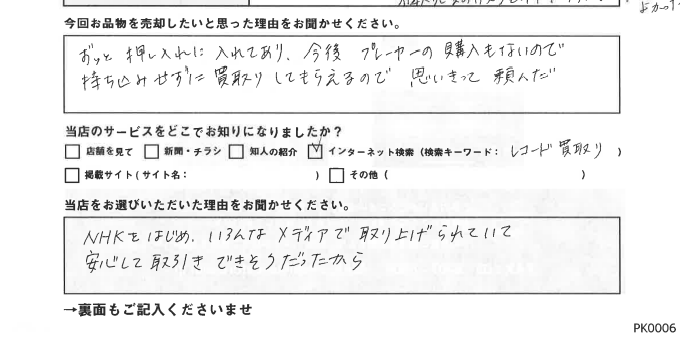 今回お品物を売却したいと思った理由をお聞かせください。
ずっと押し入れに入れてあり、今後プレーヤーの購入もないので
持ち込みせずに買取りしてもらえるので 思いきって頼んだ
当店のサービスをどこでお知りになりましたか？
□ 店舗を見て □ 新聞・チラシ □ 知人の紹介 ☑ インターネット検索（検索キーワード： レコード買取り ）
□ 掲載サイト（サイト名： ） □ その他（ ）
当店をお選びいただいた理由をお聞かせください。
NHKをはじめ、いろんなメディアで取り上げられていて
安心して取引きできそうだったから
→裏面もご記入くださいませ
PK0006